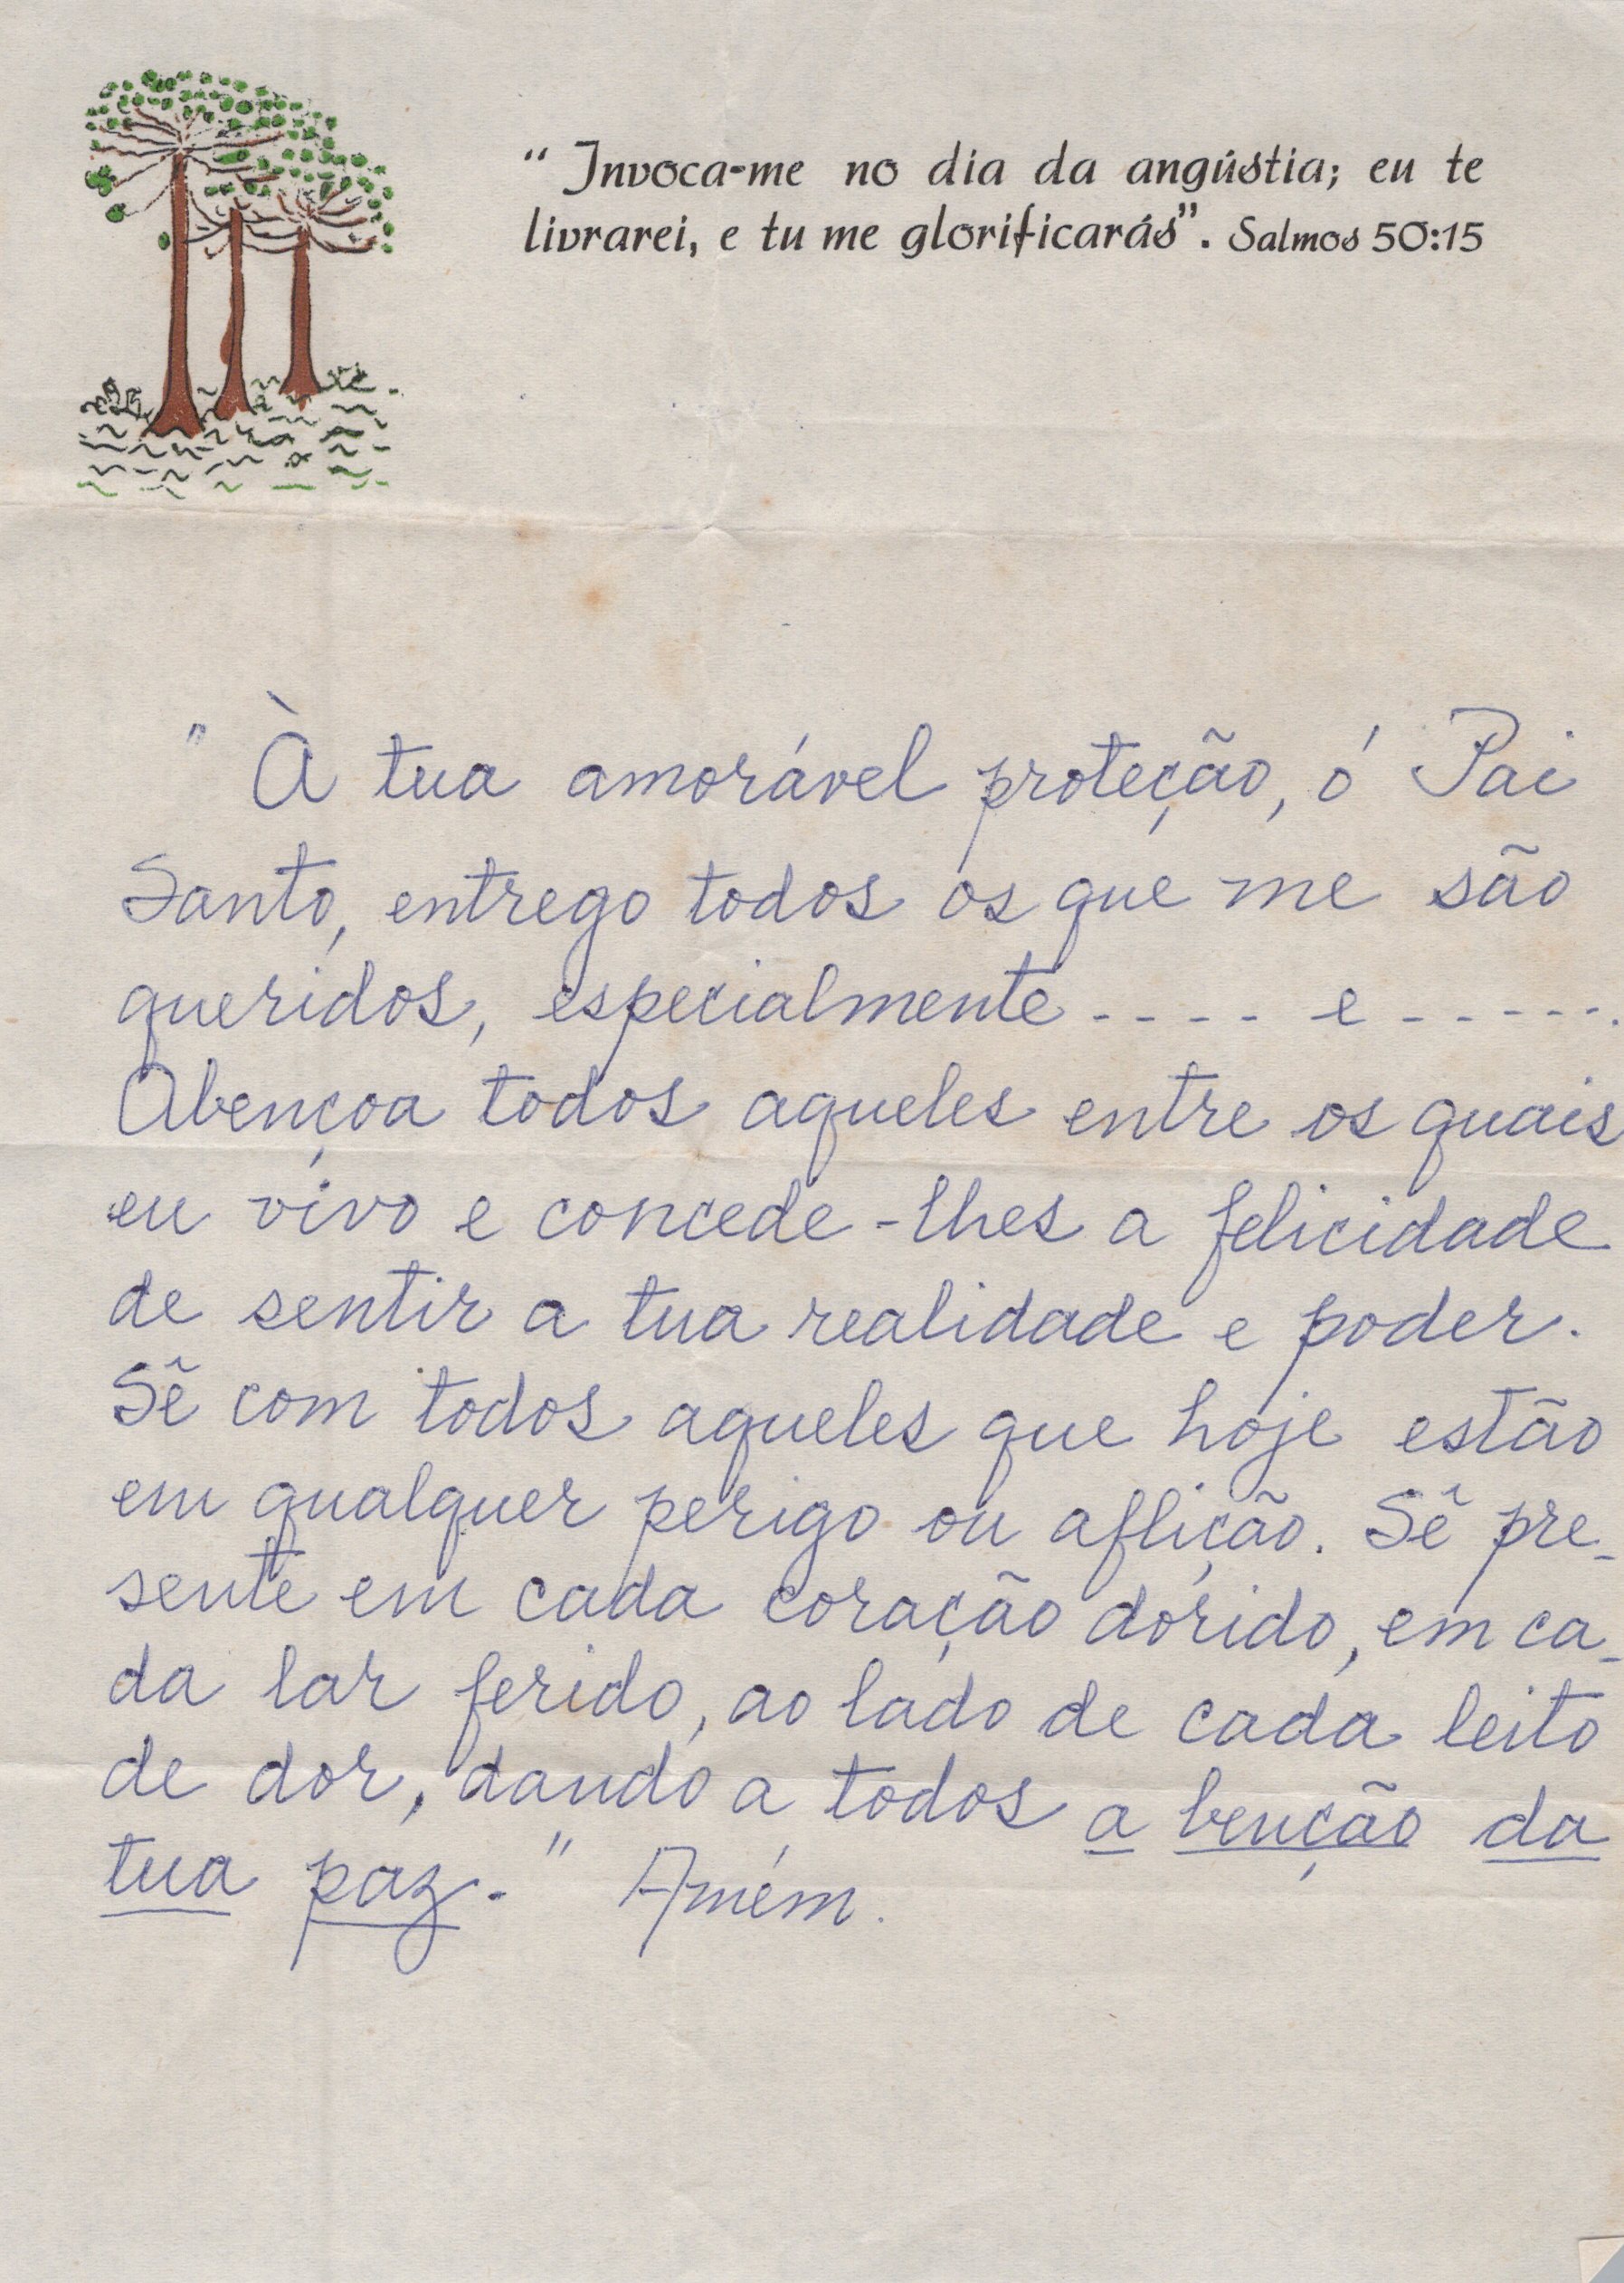 “Invoca-me no dia da angústia; eu te
livrarei, e tu me glorificarás”. Salmos 50:15
"À tua amorável proteção, ó Pai
Santo, entrego todos os que me são
queridos, especialmente - - - - e - - - - - -.
Abençoa todos aqueles entre os quais
eu vivo e concede-lhes a felicidade
de sentir a tua realidade e poder.
Sê com todos aqueles que hoje estão
em qualquer perigo ou aflição. Sê pre-
sente em cada coração dorido, em ca-
da lar ferido, ao lado de cada leito
de dor, dando a todos a benção da
tua paz." Amém.